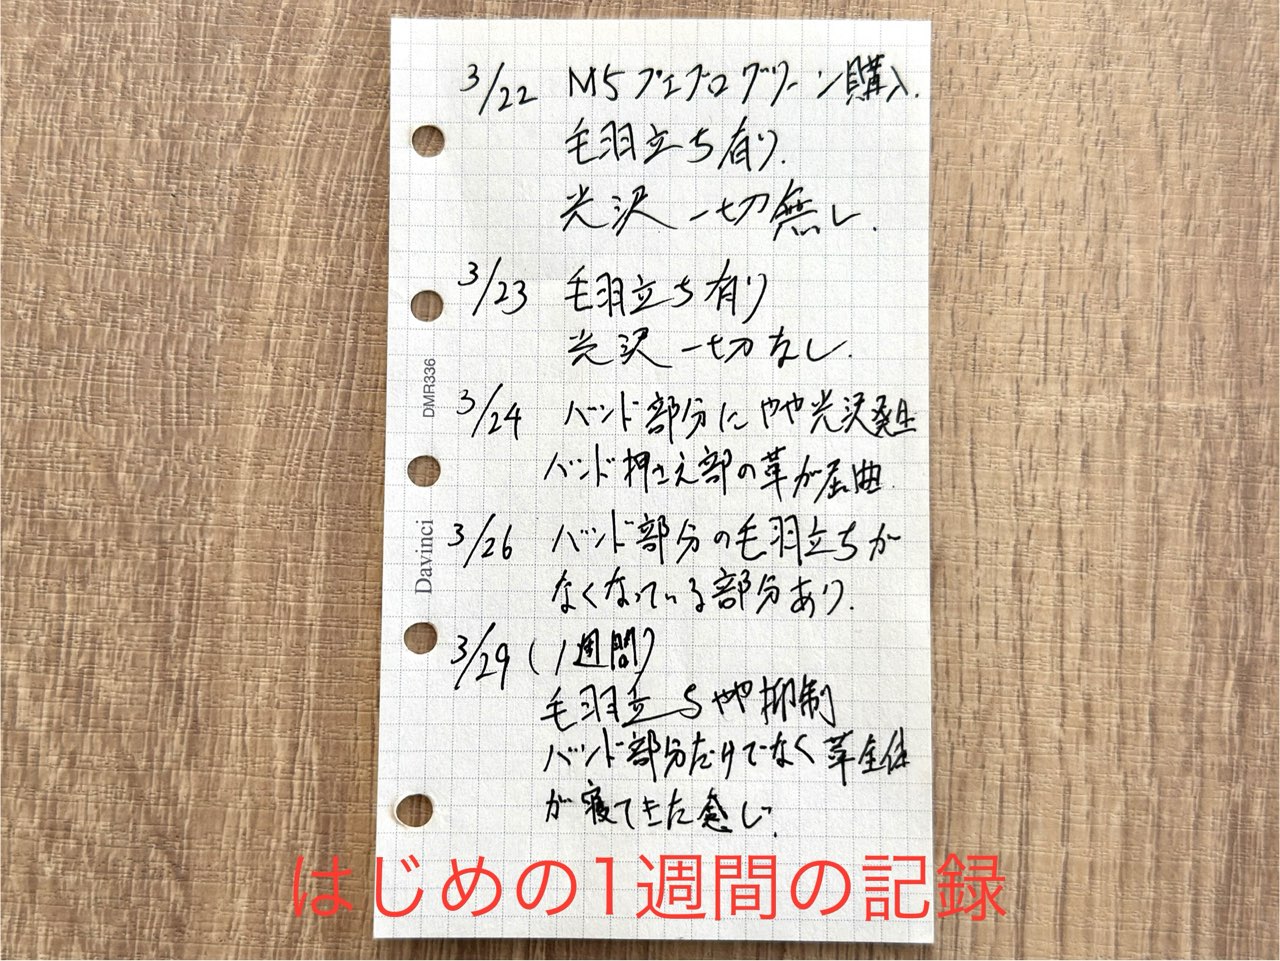 3/22 M5プエブログリーン購入.
毛羽立ち有り.
光沢一切無し.
3/23 毛羽立ち有り
光沢一切なし.
3/24 バンド部分にやや光沢発生
バンド押さえ部の革が屈曲.
3/26 バンド部分の毛羽立ちが
なくなっている部分あり.
3/29 (1週間)
毛羽立ちやや抑制
バンド部分だけでなく革全体
が寝てきた感じ.
DMR336
Davinci
はじめの1週間の記録